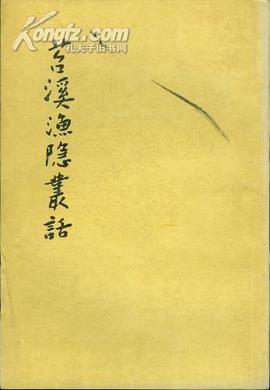 Kongfz.com
孔夫子旧书网
苕溪漁隐叢話